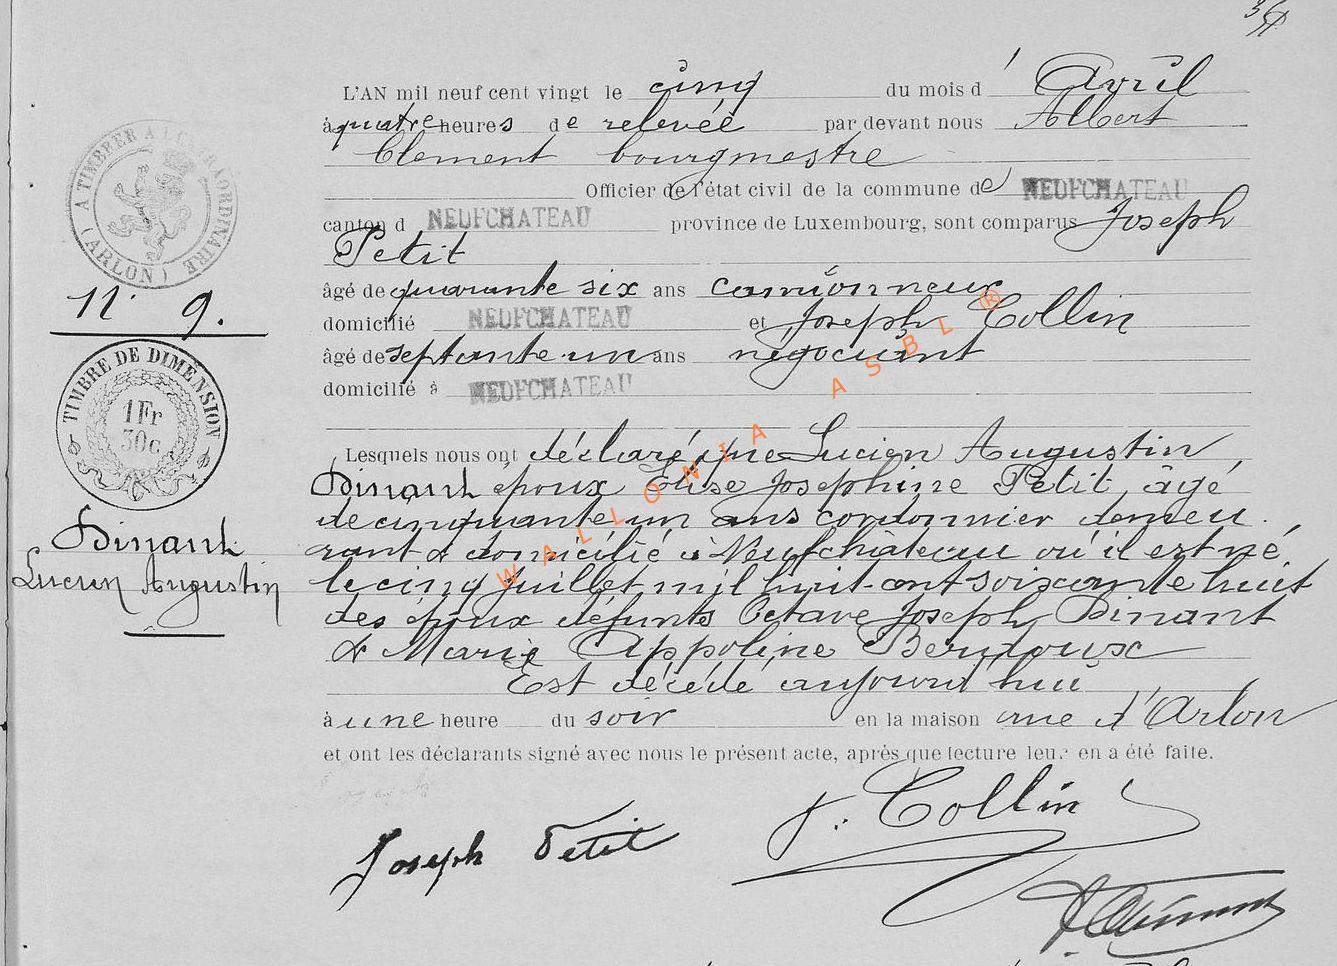 L'AN mil neuf cent vingt le cinq du mois d' Avril
à quatre heures de relevée par devant nous Albert
Clement bourgmestre
Officier de l'état civil de la commune de NEUFCHATEAU
canton d NEUFCHATEAU province de Luxembourg, sont comparus Joseph
Petit
âgé de quarante six ans camionneur
domicilié NEUFCHATEAU et Joseph Collin
âgé de septante un ans négociant
domicilié à NEUFCHATEAU
Lesquels nous ont déclaré que Lucien Augustin
Dinant époux Elise Josephine Petit, âgé
de cinquante un ans cordonnier demeu
rant & domicilié à Neufchâteau où il est né
le cinq juillet mil huit-cent soixante huit
des époux défunts Octave Joseph Dinant
& Marie Appoline Bernoux
Est décédé aujourd'hui
à une heure du soir en la maison rue d'Arlon
et ont les déclarants signé avec nous le présent acte, après que lecture leur en a été faite.
J. Collin
Joseph Petit
A TIMBRER A L'EXTRAORDINAIRE
(ARLON)
N° 9.
TIMBRE DE DIMENSION
1Fr
30c
Dinant
Lucien Augustin
WALLONIA ASBL ®